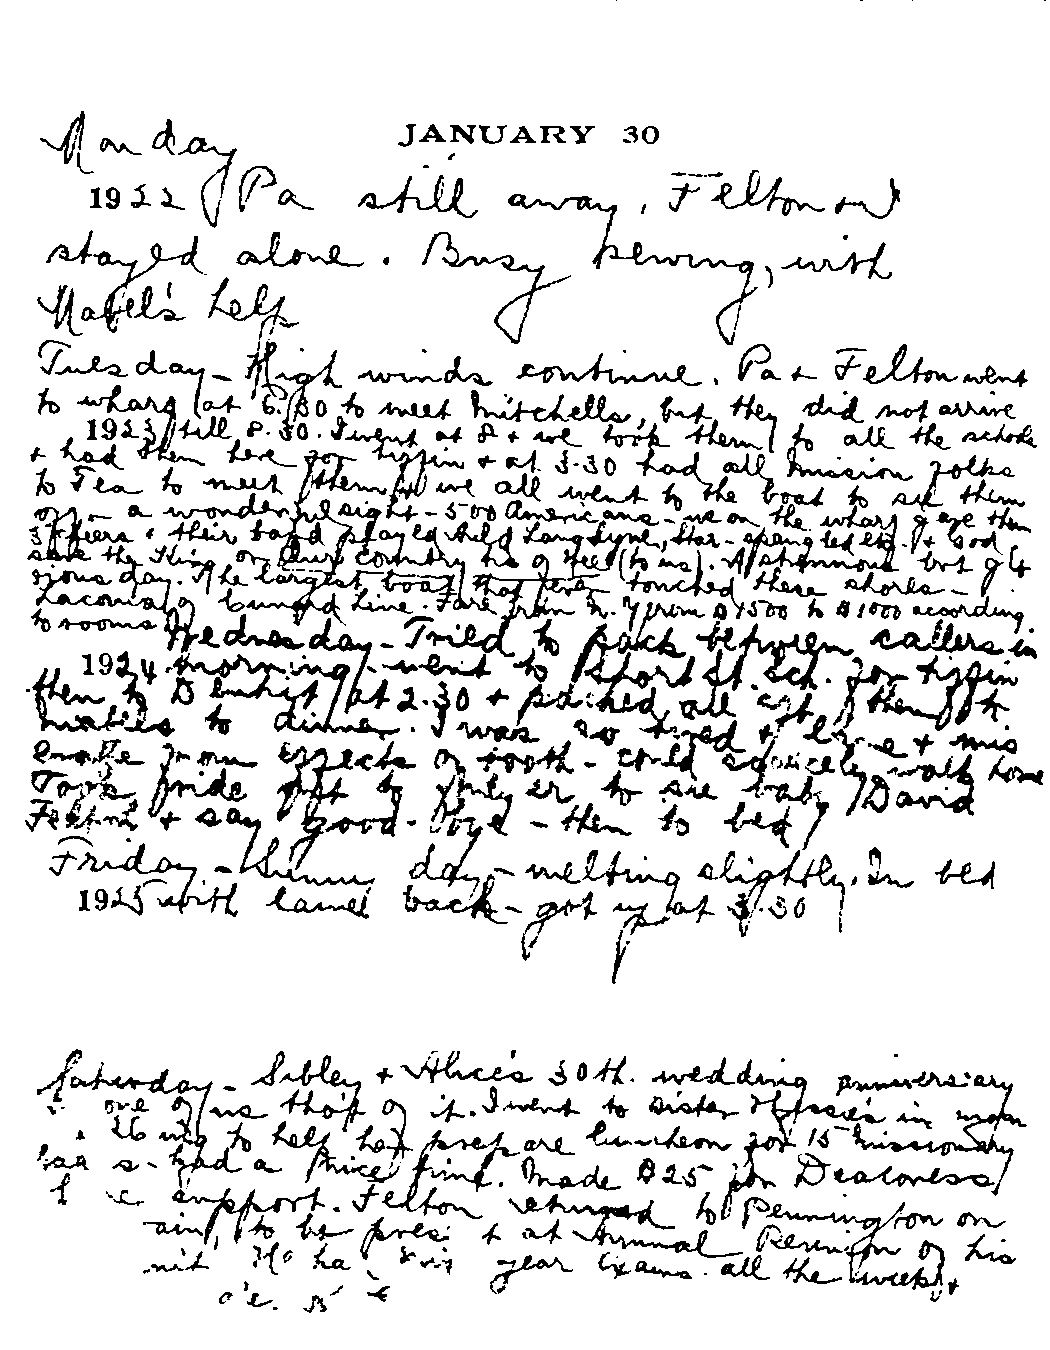 JANUARY 30
Monday
1922 Pa still away, Felton + I
stayed alone. Busy sewing, with
Mabel's help
Tuesday - High winds continue. Pa + Felton went
to wharf at 6.30 to meet Mitchells, but they did not arrive
1923 till 8.30. I went at 8 + we took them to all the schools
+ had them here for tiffin + at 3-30 had all mission folks
to Tea to meet them we all went to the boat to see them
off - a wonderful sight - 500 Americans - we on the wharf gave them
3 cheers + their band played Auld Lang Syne, Star-spangled etc. + God
save the King or Our country tis of thee (to us). A strenuous but glo
rious day. The largest boat that ever touched these shores -
Laconia of Cunard Line. Fare from N. Y from $1500 to $1000 according
to rooms
Wednesday - Tried to pack between callers in
1924 morning - went to Short St. Sch. for tiffin
then to at 2.30 + packed all then to
Mabels to dinner. I was so tired +
from effects of tooth - could scarcely walk home
Took ride to to see baby David
Felton + say good-bye - then to bed
Friday - Sunny day - melting slightly. In bed
1925 with lame back - got up at 3.30
Saturday - Sibley + Alice's 30th. wedding anniversary
one of us tho't of it. I went to sister in morn
26 ing to help her prepare luncheon for 15 missionary
s - had a nice time. Made $25 for Deaconess
support. Felton returned to Pennington on
to be at Annual Reunion of his
year Exams. all the week +